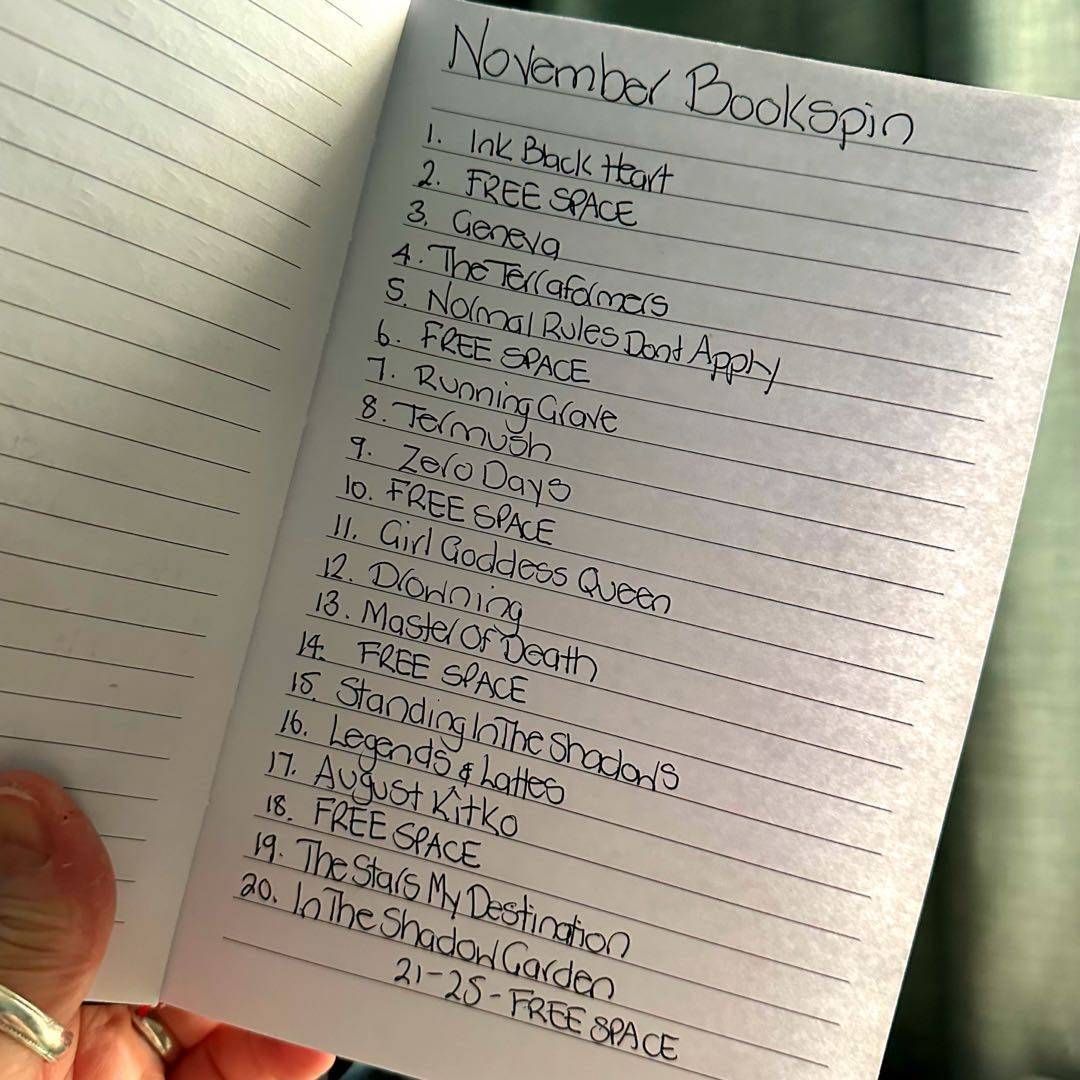 November Bookspin
1. Ink Black Heart
2. FREE SPACE
3. Geneva
4. The Terraformers
5. Normal Rules Dont Apply
6. FREE SPACE
7. Running Grave
8. Termush
9. Zero Days
10. FREE SPACE
11. Girl Goddess Queen
12. Drowning
13. Master Of Death
14. FREE SPACE
15. Standing In The Shadows
16. Legends & Lattes
17. August Kitko
18. FREE SPACE
19. The Stars My Destination
20. In The Shadow Garden
21-25 - FREE SPACE